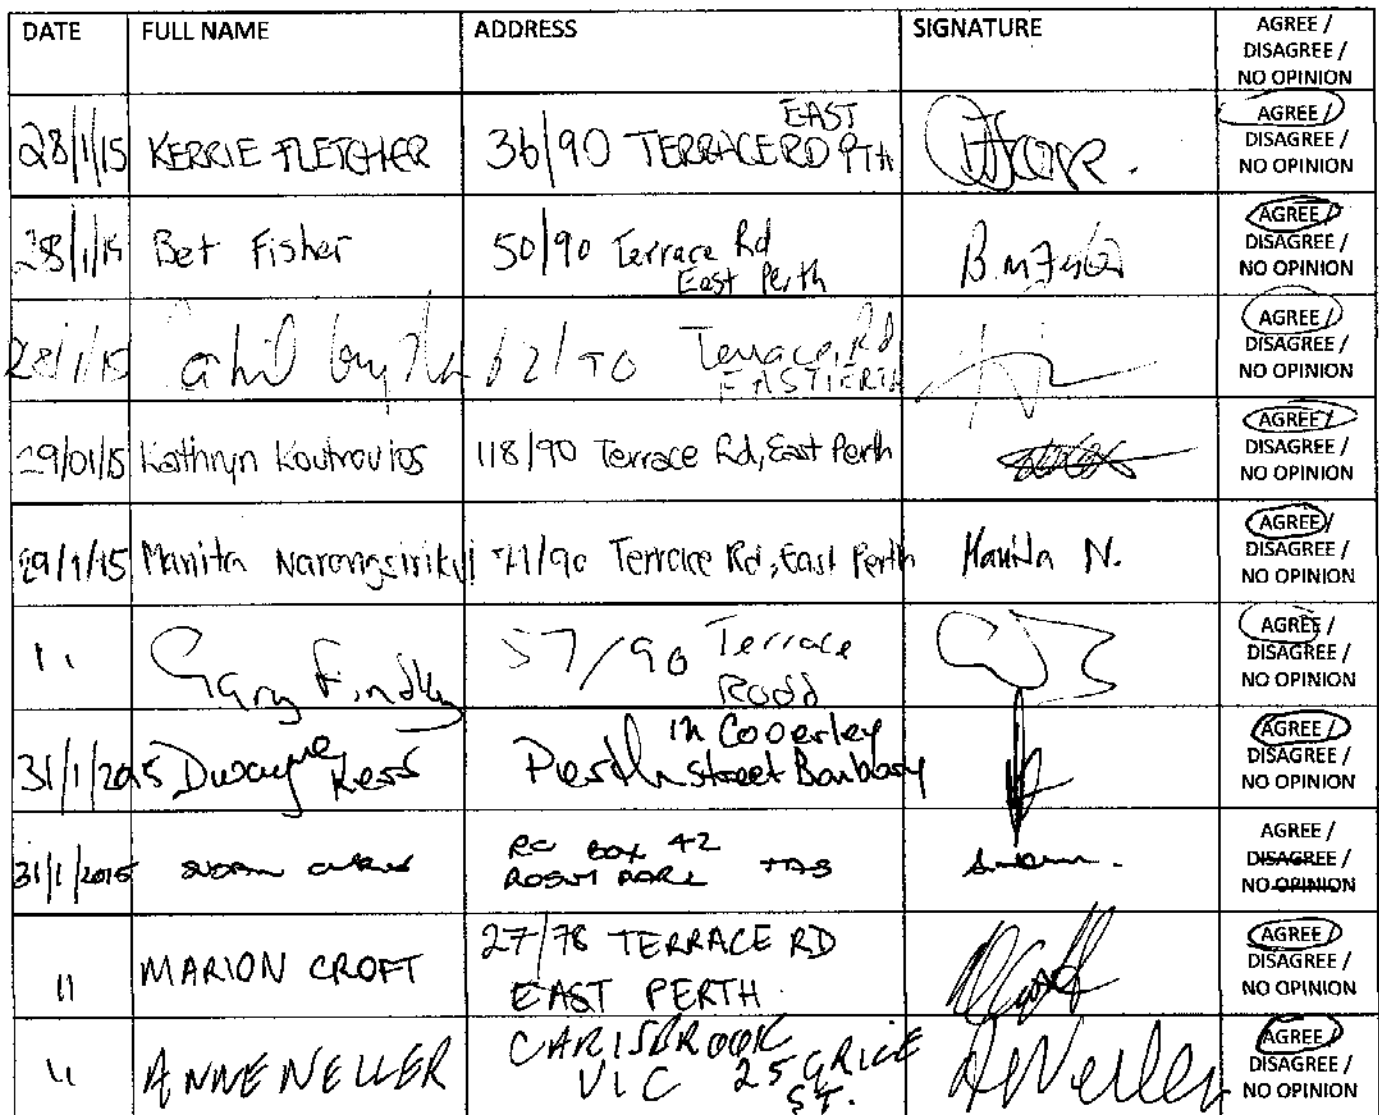 DATE FULL NAME ADDRESS SIGNATURE AGREE /
DISAGREE /
NO OPINION
EAST
28/1/15 KERRIE FLETCHER 36/90 TERRACE RD PTH AGREE /
DISAGREE /
NO OPINION
28/1/15 Bet Fisher 50/90 Terrace Rd B.M Fisher AGREE /
East Perth DISAGREE /
NO OPINION
28/1/15 62/90 Terrace, Rd AGREE /
EAST PERTH DISAGREE /
NO OPINION
29/01/15 Kathryn Koutroulos 118/90 Terrace Rd, East Perth AGREE /
DISAGREE /
NO OPINION
29/1/15 Manita Narongsirikul 71/90 Terrace Rd, East Perth Manita N. AGREE /
DISAGREE /
NO OPINION
" Gary Findlay 57/90 Terrace AGREE /
Road DISAGREE /
NO OPINION
31/1/2015 Dwayne 12 Cooerley AGREE /
Perth Street DISAGREE /
NO OPINION
31/1/2015 BOX 42 AGREE /
TAS DISAGREE /
NO OPINION
" MARION CROFT 27/78 TERRACE RD AGREE /
EAST PERTH DISAGREE /
NO OPINION
" ANNE NELLER CARISBROOK AGREE /
VIC 25 GRICE A Neller DISAGREE /
ST. NO OPINION